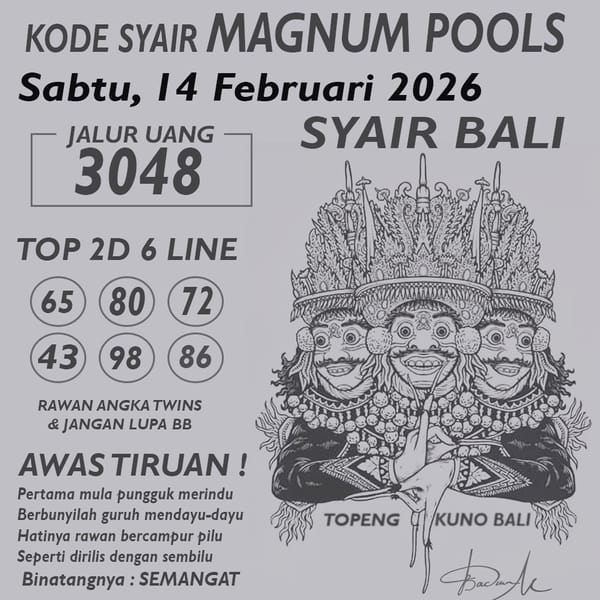 KODE SYAIR MAGNUM POOLS
Sabtu, 14 Februari 2026
JALUR UANG
3048
SYAIR BALI
TOP 2D 6 LINE
65 80 72
43 98 86
RAWAN ANGKA TWINS
& JANGAN LUPA BB
AWAS TIRUAN !
Pertama mula pungguk merindu
Berbunyilah guruh mendayu-dayu
Hatinya rawan bercampur pilu
Seperti dirilis dengan sembilu
Binatangnya : SEMANGAT
TOPENG KUNO BALI